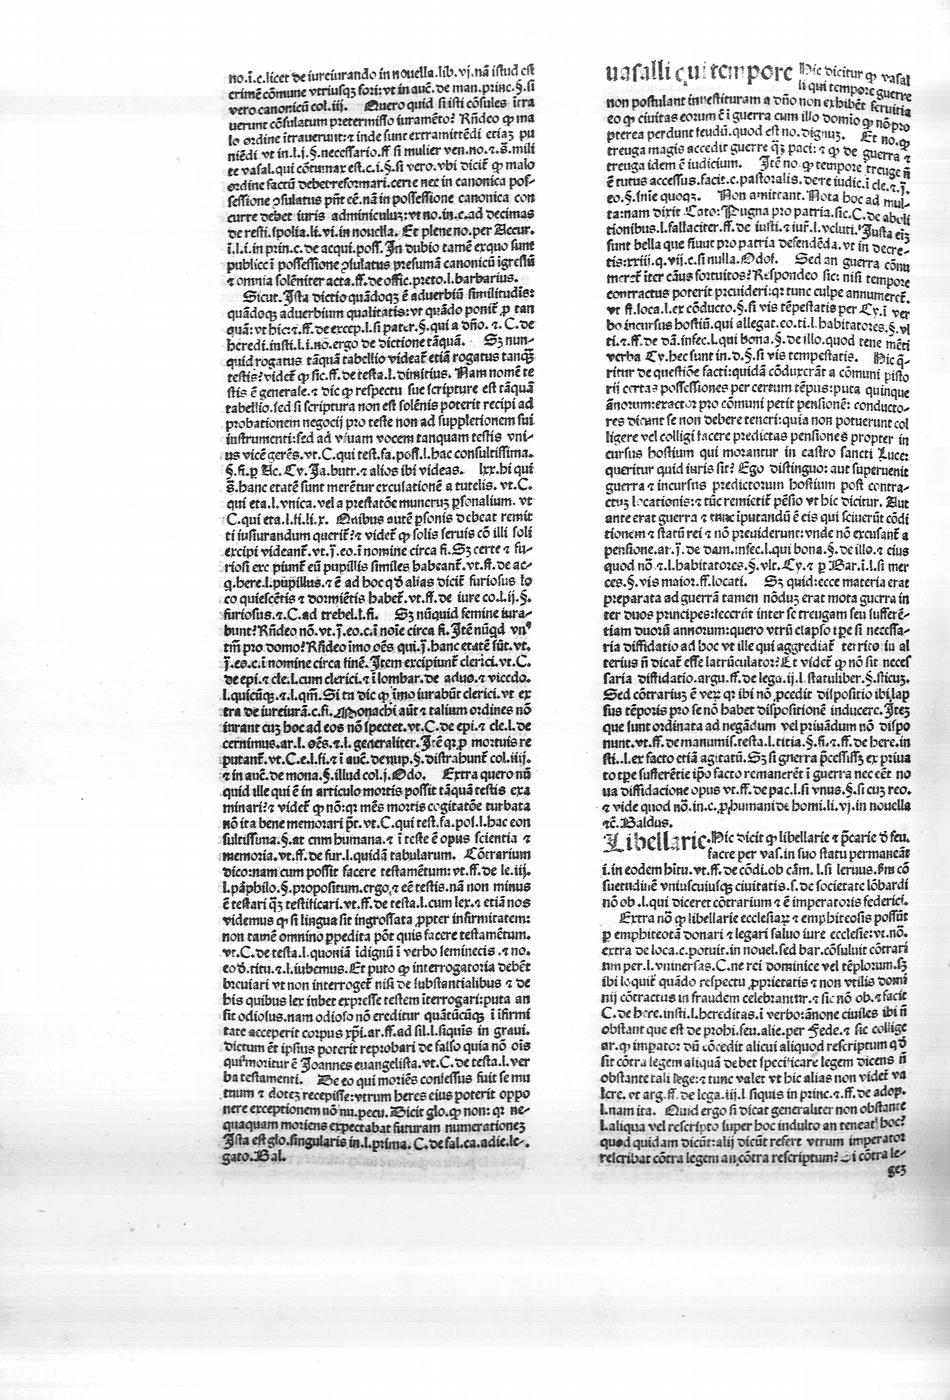 no.ī.c.licet de iureiurando in nouella.lib.vj.nā istud est
crimē cōmune vtriusqꝫ fori:vt in auē.de man.princ.§.si
vero canonicū col.iij. Quero quid si isti cōsules ītra
uerunt cōsulatum pretermisso iuramēto? Rñdeo ꝙ ma
lo ordine ītrauerunt:⁊ inde sunt extramittēdi etiaꝫ pu
niēdi vt in.l.j.§.necessario.ff si mulier ven.no.⁊.ß.mili
te vasal.qui cōtumax est.c.i.§.si vero.vbi dicit̄ ꝙ malo
ordine factū debet reformari.certe nex in canonica pos-
sessione ꝯsulatus pn̄t cē.nā in possessione canonica con
curre debet iuris adminiculuꝫ:vt no.in.c.ad decimas
de resti.spolia.li.vi.in nouella. Et plene no.per Accur.
ī.l.i.in prin.c.de acqui.poss. In dubio tamē exquo sunt
publice ī possessione ꝯsulatus presumā canonicū īgressū
⁊ omnia solēniter acta.ff.de offic.preto.l.barbarius.
Sicut. Ista dictio quādoqꝫ ē aduerbiū similitudīs:
quādoqꝫ aduerbium qualitatis:vt quādo ponit̄ ꝓ tan
quā:vt hic:⁊.ff.de excep.l.si pater.§.qui a dño.⁊.C.de
heredi.insti.l.i.nō.ergo de dictione tāquā. Sꝫ nun-
quid rogatus tāquā tabellio videat̄ etiā rogatus tanqꝫ
testis?videt̄ ꝙ sic.ff.de testa.l.dimitius. Nam nomē te
stis ē generale.⁊ dic ꝙ respectu sue scripture est tāquā
tabellio.sed si scriptura non est solēnis poterit recipi ad
probationem negocij pro teste non ad suppletionem sui
instrumenti:sed ad viuam vocem tanquam testis vni-
us vicē gerēs.vt.C.qui test.fa.poss.l.hac consultissima.
§.fi.ꝑ Ac. Cy. Ja.butr.⁊ alios ibi videas. lxx.hi qui
ß.hanc etatē sunt merētur excusationē a tutelis.vt.C.
qui eta.l.vnica.vel a prestatōe muneruꝫ ꝑsonalium.vt
C.qui eta.l.fi.li.x. Quibus autē ꝑsonis debeat remit
ti iusiurandum querit̄?⁊ videt̄ ꝙ solis seruis cō illi soli
excipi videant̄.vt.j̄.eo.ī nomine circa fi. Sꝫ certe ⁊ fu-
riosi exc piunt̄ eū pupillis similes habeant̄.vt.ff.de ac-
q.here.l.pupillus.⁊ ē ad hoc qđ alias dicit̄ furiosus lo
co quiescētis ⁊ dormiētis habet̄.vt.ff.de iure co.l.ij.§.
furiosus.⁊.C.ad trebel.l.fi. Sꝫ nūquid femine iura-
bunt?Rñdeo nō.vt.j̄.eo.c.ī noīe circa fi. Itē nūqđ vn⁹
tm̄ pro domo?Rñdeo īmo oēs qui.j̄.hanc etatē sūt.vt.
j̄.eo.c.ī nomine circa finē. Item excipiunt̄ clerici.vt.C.
de epi.⁊ cle.l.cum clerici.⁊ ī lombar.de aduo.⁊ vicedo.
l.quicūqꝫ.⁊.l.qm̄. Si tu dic ꝙ īmo iurabūt clerici.vt ex
tra de iureiurā.c.fi. Monachi aūt ⁊ talium ordines nō
iurant cuꝫ hoc ad eos nō spectet.vt.C.de epi.⁊ cle.l.de
cernimus.ar.l. oēs.⁊.l. generaliter. Itē qꝛ ꝑ mortuis re
putant̄.vt.C.e.l.fi.⁊ ī auē.de nup.§.distrabunt̄ col.iiij.
⁊ in auē.de mona.§.illud col.j.Odo. Extra quero nū
quid ille qui ē in articulo mortis possit tāquā testis exa
minari?⁊ videt̄ ꝙ nō:qꝛ mēs mortis cogitatōe turbata
nō ita bene memorari pt̄.vt.C.qui test.fa.pos.l.hac con
sultissima.§.at cum humana.⁊ ī teste ē opus scientia ⁊
memoria.vt.ff.de fur.l.quidā tabularum. Cōtrarium
dico:nam cum possit facere testamētum:vt.ff.de le.iij.
l.pāphilo.§.propositum.ergo,⁊ eē testis.nā non minus
ē testari qꝫ testificari.vt.ff.de testa.l.cum lex.⁊ etiā nos
videmus ꝙ si lingua sit ingrossata ꝓpter infirmitatem:
non tamē omnino ꝓpedita pōt quis facere testamētum.
vt.C.de testa.l.quoniā īdignū ī verbo seminecis.⁊ no.
eođ.titu.⁊.l.iubemus. Et puto ꝙ interrogatoria debēt
breuiari vt non interroget̄ nisi de substantialibus ⁊ de
his quibus lex iubet expresse testem īterrogari:puta an
sit odiosus.nam odioso nō creditur quātūcūqꝫ ī īfirmi
tate acceperit corpus xp̄i.ar.ff.ad sil.l.siquis in graui.
dictum ēt ipsius poterit reprobari de falso quia nō oīs
qui moritur ē Joannes euangelista.vt.C.de testa.l.ver
ba testamenti. De eo qui moriēs confessus fuit se mu
tuum ⁊ doteꝫ recepisse:vtrum heres eius poterit oppo
nere exceptionem nō nu.pecu. Dicit glo.ꝙ non: qꝛ ne-
quaquam moriens expectabat futuram numerationeꝫ
Ista est glo.singularis in.l.prima. C.de fal.ca.adie.le-
gato. Bal.
uasalli qui tempore Hic dicitur ꝙ vasal
li qui tempore guerre
non postulant inuestituram a dño non exhibēt seruitia
eo ꝙ ciuitas eorum ē ī guerra cum illo domio ꝙ nō pro
pterea perdunt feudū.quod est no.dignuꝫ. Et no.ꝙ
treuga magis accedit guerre qꝫ paci: ⁊ ꝙ de guerra ⁊
treuga idem ē iudicium. Itē no.ꝙ tempore treuge n̄
ē tutus accessus.facit.c.pastoralis.de re iudic.ī cle.⁊.j̄.
eo.§.sine quoqꝫ. Non amittant. Nota hoc ad mul-
ta:nam dixit Cato: Pugna pro patria.sic.C.de aboli
tionibus.l.fallaciter.ff.de iusti.⁊ iur̄.l.veluti. Iusta eīꝫ
sunt bella que fiunt pro patria defendēda.vt in decre-
tis:xxiij.q.vij.c.si nulla.Odof. Sed an guerra cōnu
meret̄ īter cāus fortuitos? Respondeo sic: nisi tempore
contractus poterit preuideri:qꝛ tunc culpe annumeret̄.
vt ff.loca.l.ex cōducto.§.si vis tēpestatis per Cy.ī ver
bo incursus hostiū.qui allegat.eo.ti.l.habitatores.§.vl
ti.⁊.ff.de dā.infec.l.qui bona.§.de illo.quod tene mēti
verba Cy.hec sunt in.d.§.si vis tempestatis. Hic q̄-
ritur de questiōe facti:quidā cōduxerāt a cōmuni pisto
rij certas possessiones per certum tēpus:puta quinque
ānorum:exactor pro cōmuni petit pensionē: conducto-
res dicunt se non debere teneri:quia non potuerunt col
ligere vel colligi facere predictas pensiones propter in
cursus hostium qui morantur in castro sancti Luce:
queritur quid iuris sit? Ego distinguo: aut superuenit
guerra ⁊ incursus predictorum hostium post contra-
ctuꝫ locationis:⁊ tūc remictit̄ pēsio vt hic dicitur. Aut
ante erat guerra ⁊ tunc īputandū ē eis qui sciuerūt cōdi
tionem ⁊ statū rei ⁊ nō preuiderunt:vnde nō excusant̄ a
pensione.ar.j̄.de dam.infec.l.qui bona.§.de illo.⁊ eius
quod nō.⁊ l.habitatores.§.vlt. Cy.⁊ ꝑ Bar.ī.l.si mer
ces.§.vis maior.ff.locati. Sꝫ quid:ecce materia erat
preparata ad guerrā tamen nōduꝫ erat mota guerra in
ter duos principes:fecerūt inter se treugam seu sufferē-
tiam duorū annorum:quero vtrū elapso tpe si necessa-
ria diffidatio ad hoc vt ille qui aggrediat̄ territoriu al
terius n̄ dicat̄ esse latrūculator? Et videt̄ ꝙ nō sit neces
saria diffidatio.argu.ff.de lega.ij.l.statuliber.§.sticuꝫ.
Sed cōtrariuꝫ ē veꝝ qꝛ ibi nō ꝓcedit dispositio ibi lap
sus tēporis pro se nō habet dispositionē inducere. Iteꝫ
que sunt ordinata ad negādum vel priuādum nō dispo
nunt.vt.ff.de manumis.testa.l.titia.§.fi.⁊.ff.de here.in
sti.l.ex facto etiā agitatū. Sꝫ si guerra ꝓcessisset ex priua
to tpe sufferētie ipō facto remanerēt ī guerra nec ēēt no
ua diffidacione opus vt.ff.de pac.l.si vnus.§.si cuꝫ reo.
⁊ vide quod nō.in.c.ꝓhumani de homi.li.vj.in nouella
⁊c̄. Baldus.
Libellarie. Hic dicit̄ ꝙ libellarie ⁊ p̄carie đ feu.
facte per vas.in suo statu permaneāt
ī.in eodem hītu.vt.ff.de cōdi.ob cām.l.si seruus.fm cō
suetudinē vniuscuiusqꝫ ciuitatis.s.de societate lōbardi
nō ob.l.qui diceret cōtrarium ⁊ ē imperatoris federici.
Extra nō ꝙ libellarie ecclesiaꝝ ⁊ emphiteosis possūt
ꝑ emphiteotā donari ⁊ legari saluo iure ecclesie:vt.nō.
extra de loca.c.potuit.in nouel.sed bar.cōsuluit cōtrari
um per.l.vniuersas.C.ne rei dominice vel tēplorum.sꝫ
ibi loquit̄ quādo respectu ꝓprietatis ⁊ non vtilis domi
nij cōtractus in fraudem celebrantur.⁊ sic nō ob.⁊ facit
C.de here.insti.l.hereditas.ī verbo:ānone ciuiles ibi n̄
obstant que est de prohi.feu.alie.per Fede.⁊ sic collige
ar.ꝙ impator dū cōcedit alicui aliquod rescriptum qđ
sit cōtra legem aliquā debet specificare legem dicens n̄
obstante tali lege:⁊ tunc valet vt hic alias non videt̄ va
lere. ot arg.ff.de lega.iij.l siquis in princ.⁊.ff.de adop.
l.nam ita. Quid ergo si dicat generaliter non obstante
l.aliqua vel rescripto super hoc indulto an teneat̄ hoc?
quod quidam dicūt:alij dicūt refert vtrum imperator
rescribat cōtra legem an cōtra rescriptum? Si cōtra le-
geꝫ